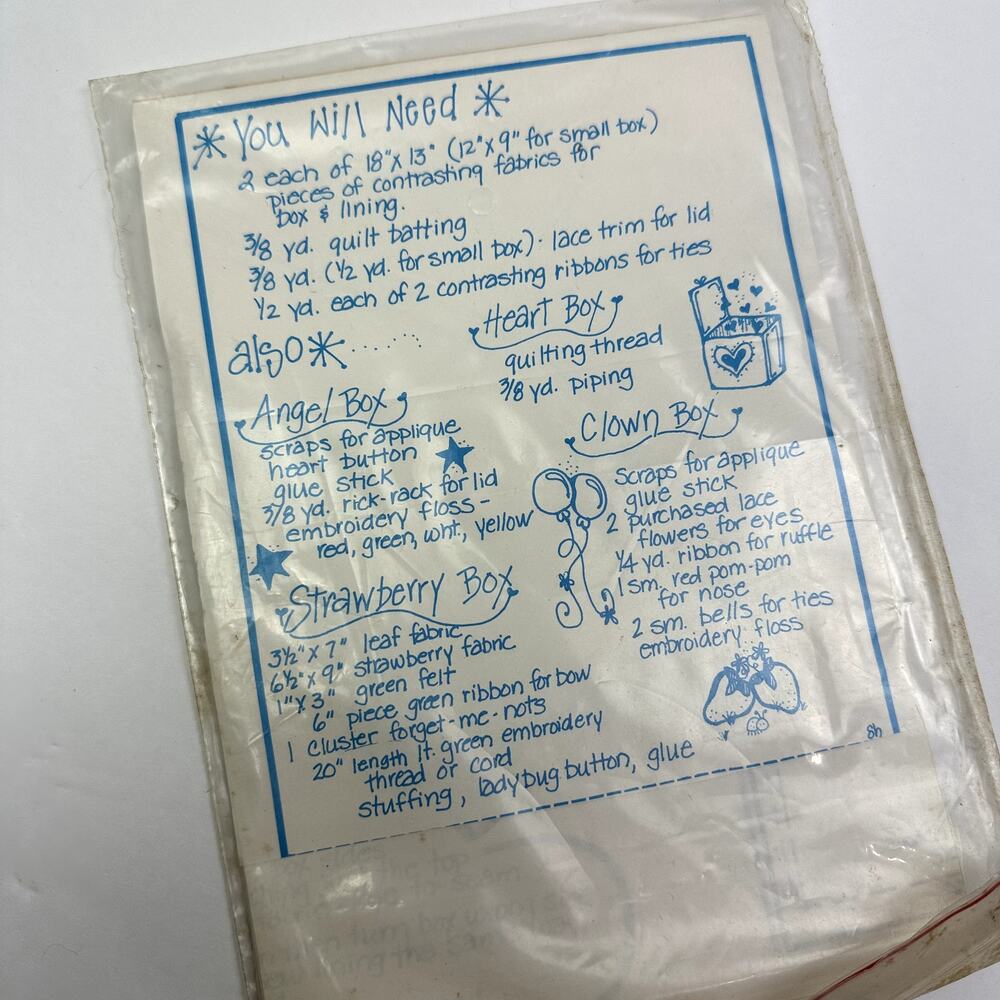 * You Will Need *
2 each of 18"x 13" (12"x 9" for small box)
pieces of contrasting fabrics for
box & lining.
3/8 yd. quilt batting
3/8 yd. (1/2 yd. for small box) - lace trim for lid
1/2 yd. each of 2 contrasting ribbons for ties
also* .......
Heart Box
quilting thread
3/8 yd. piping
Angel Box
scraps for applique
heart button
glue stick
3/8 yd. rick-rack for lid
embroidery floss -
red, green, wht., yellow
Clown Box
Scraps for applique
glue stick
2 purchased lace
flowers for eyes
1/4 yd. ribbon for ruffle
1 sm. red pom-pom
for nose
2 sm. bells for ties
embroidery floss
Strawberry Box
3 1/2" x 7" leaf fabric
6 1/2" x 9" strawberry fabric
1" x 3" green felt
6" piece green ribbon for bow
1 cluster forget-me-nots
20" length lt. green embroidery
thread or cord
stuffing, ladybug button, glue
sh
the top
to seam
turn box
the